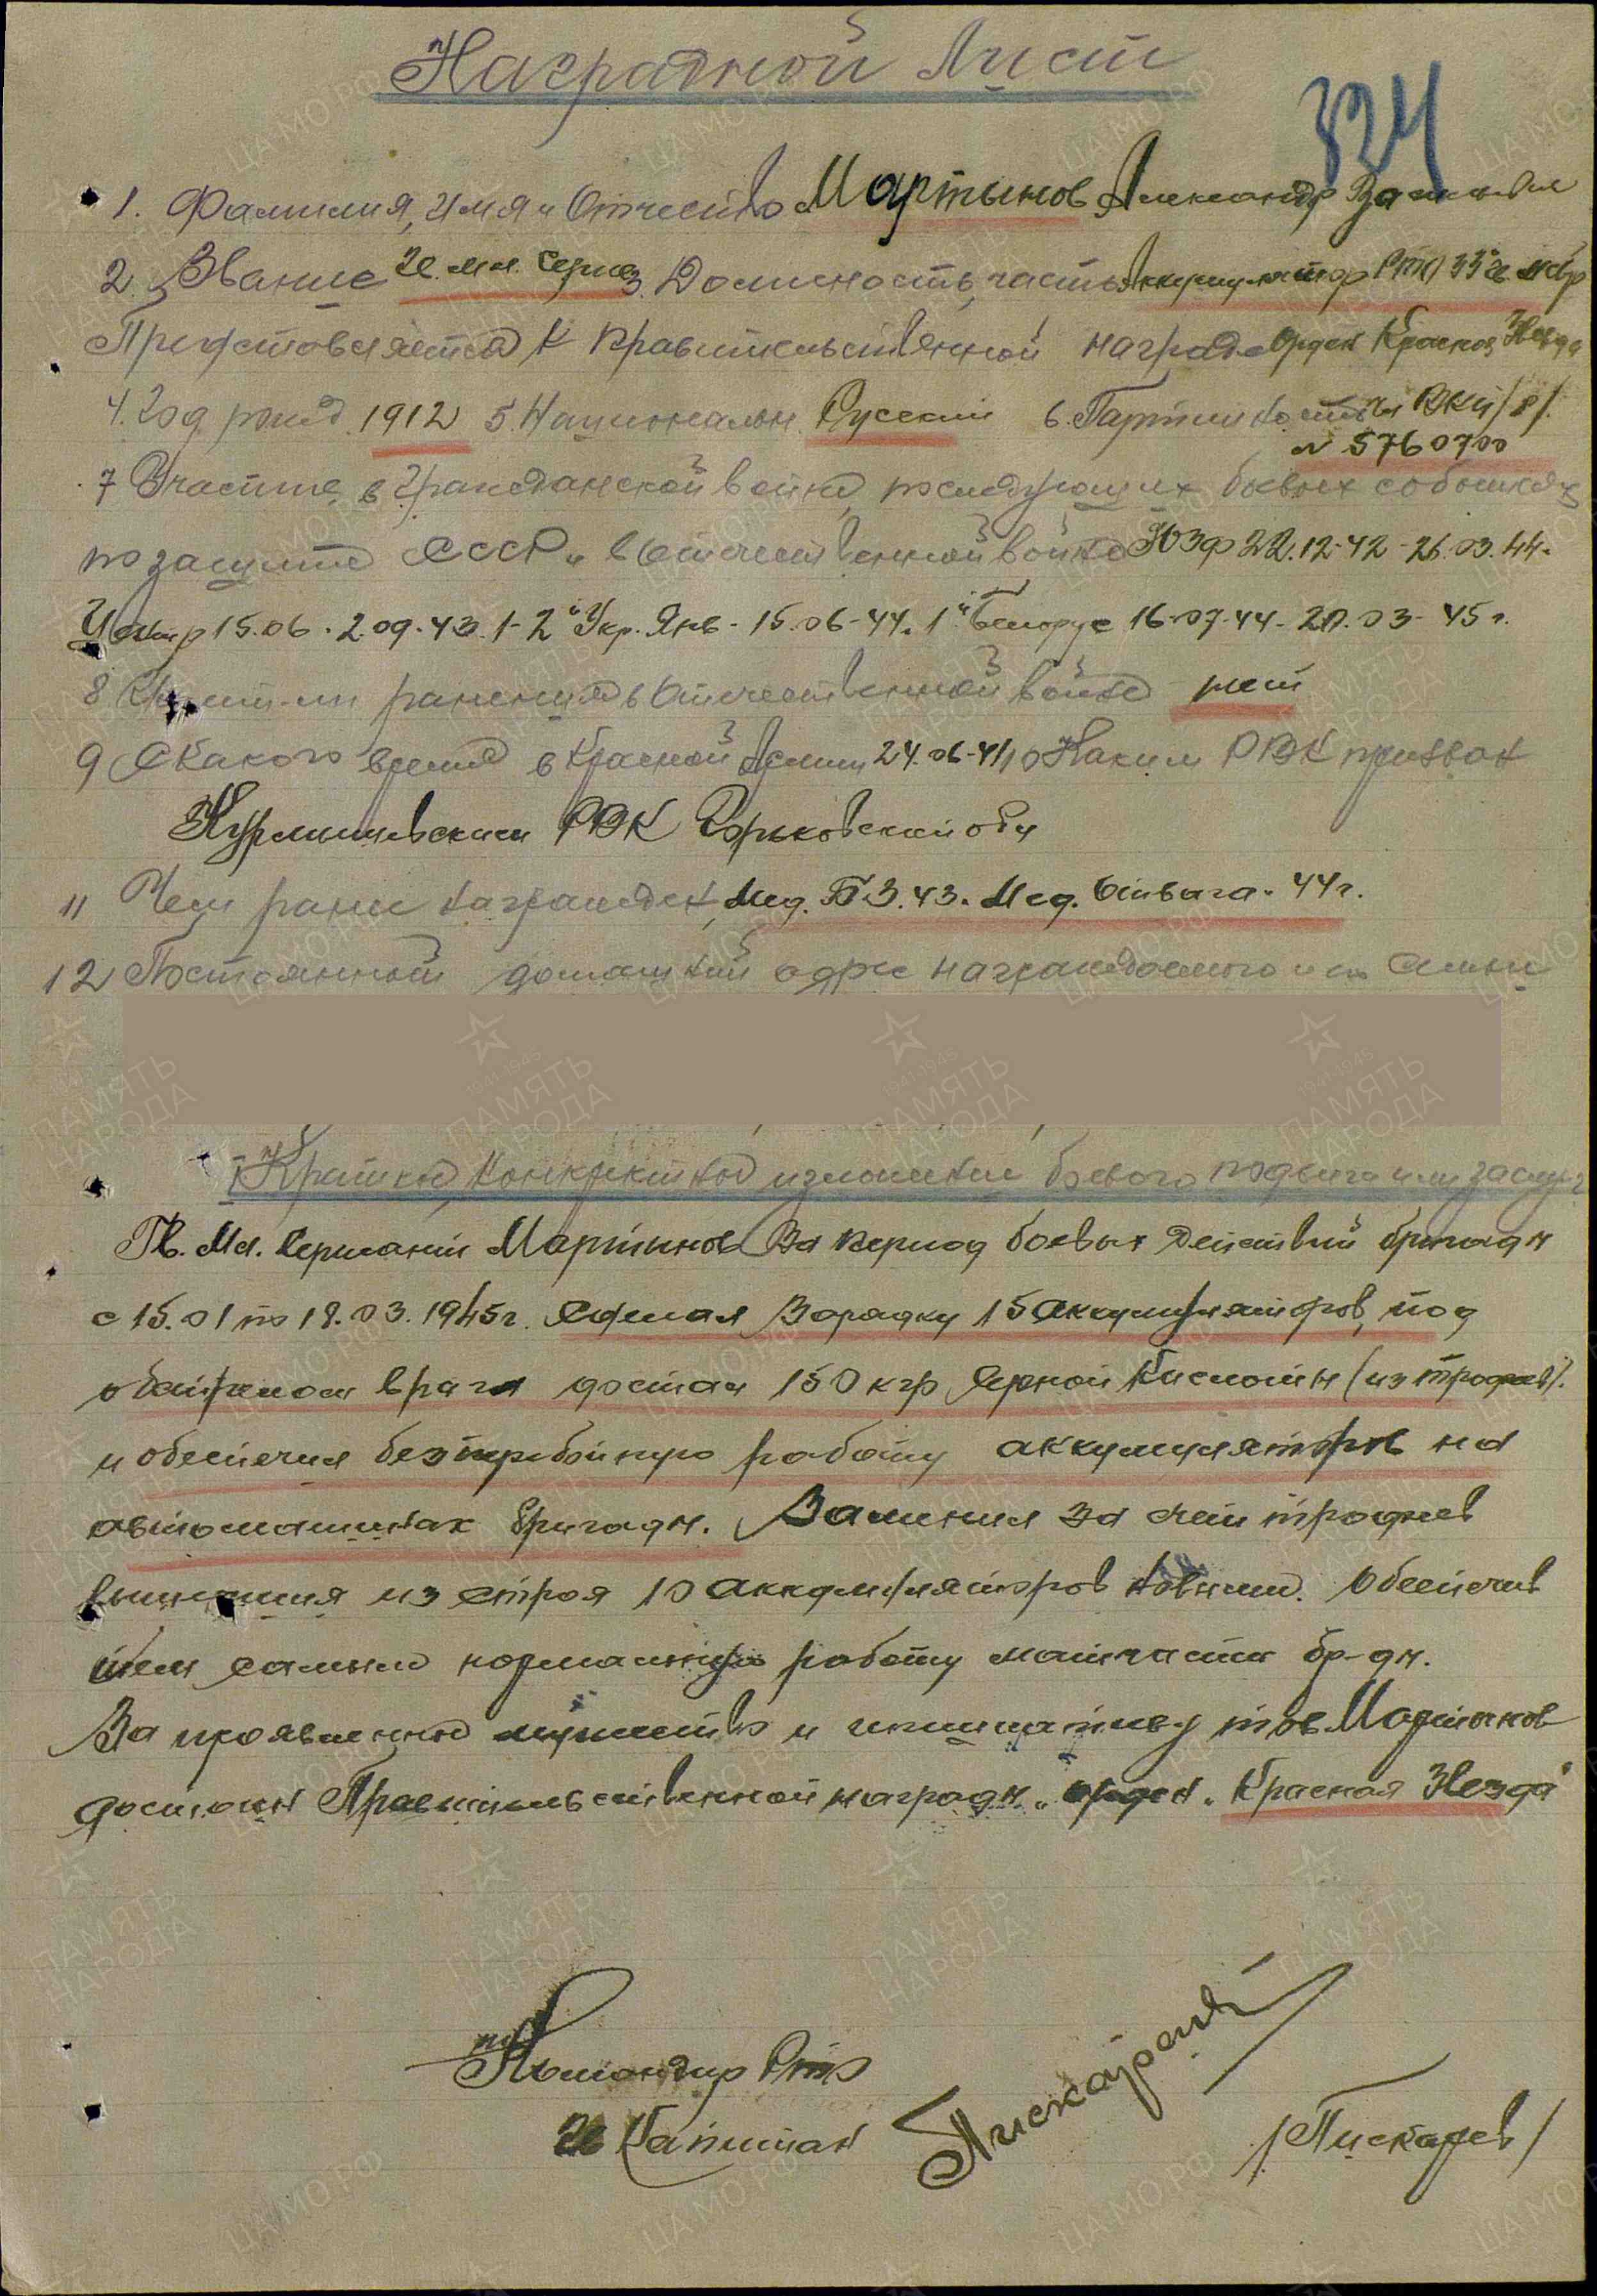 Наградной Лист
324
1. Фамилия, Имя и Отчество Мартынов Александр
2. Звание Гв. мл. Серж 3. Должность, часть Аккумулятор РТО 33 Гв. Мбр
Представляется к Правительственной награде Орден Красная Звезда
4. Год рожд. 1912 5. Национальн Русский 6. Партийность Чл ВКП/б/.
№ 5760700
7 Участие в Гражданской войне, последующих боевых событиях
по защите СССР и в отечественной войне ЮЗФ 22.12-42 - 26.03.44.
Центр 15.06 - 2.09.43. 1-2й Укр. Янв - 15.06-44. 1й Белорус 16-07-44 - 20.03-45 г.
8 Имеет-ли ранения в Отечественной войне нет
9 С какого время в Красной Армии 24.06-41 10 Каким РВК призван
Курмышевским РВК Горьковской обл
11 Чем ранее награжден, Мед. Б.З. 43. Мед. Отвага - 44 г.
12 Постоянный домашний адрес награждаемого и его семьи
Краткое, конкретное изложение боевого подвига или заслуг
Гв. Мл. Сержант Мартынов За период боевых действий бригады
с 15.01 по 18.03.1945 г. Сделал Зарядку 15 аккумуляторов, под
обстрелом врага достал 150 кгр Серной Кислоты (из трофеев).
и обеспечил безперебойную работу аккумуляторов на
автомашинах бригады. Заменил за счет трофеев
вышедшия из строя 10 аккамуляторов новыми. Обеспечив
тем самым нормальную работу матчасти бр-ды.
За проявленное мужество и инициативу тов. Мартынов
достоин Правительственной награды „орден „Красная Звезда"
Командир РТО
Гв Капитан
Пискарев
/Пискарев/